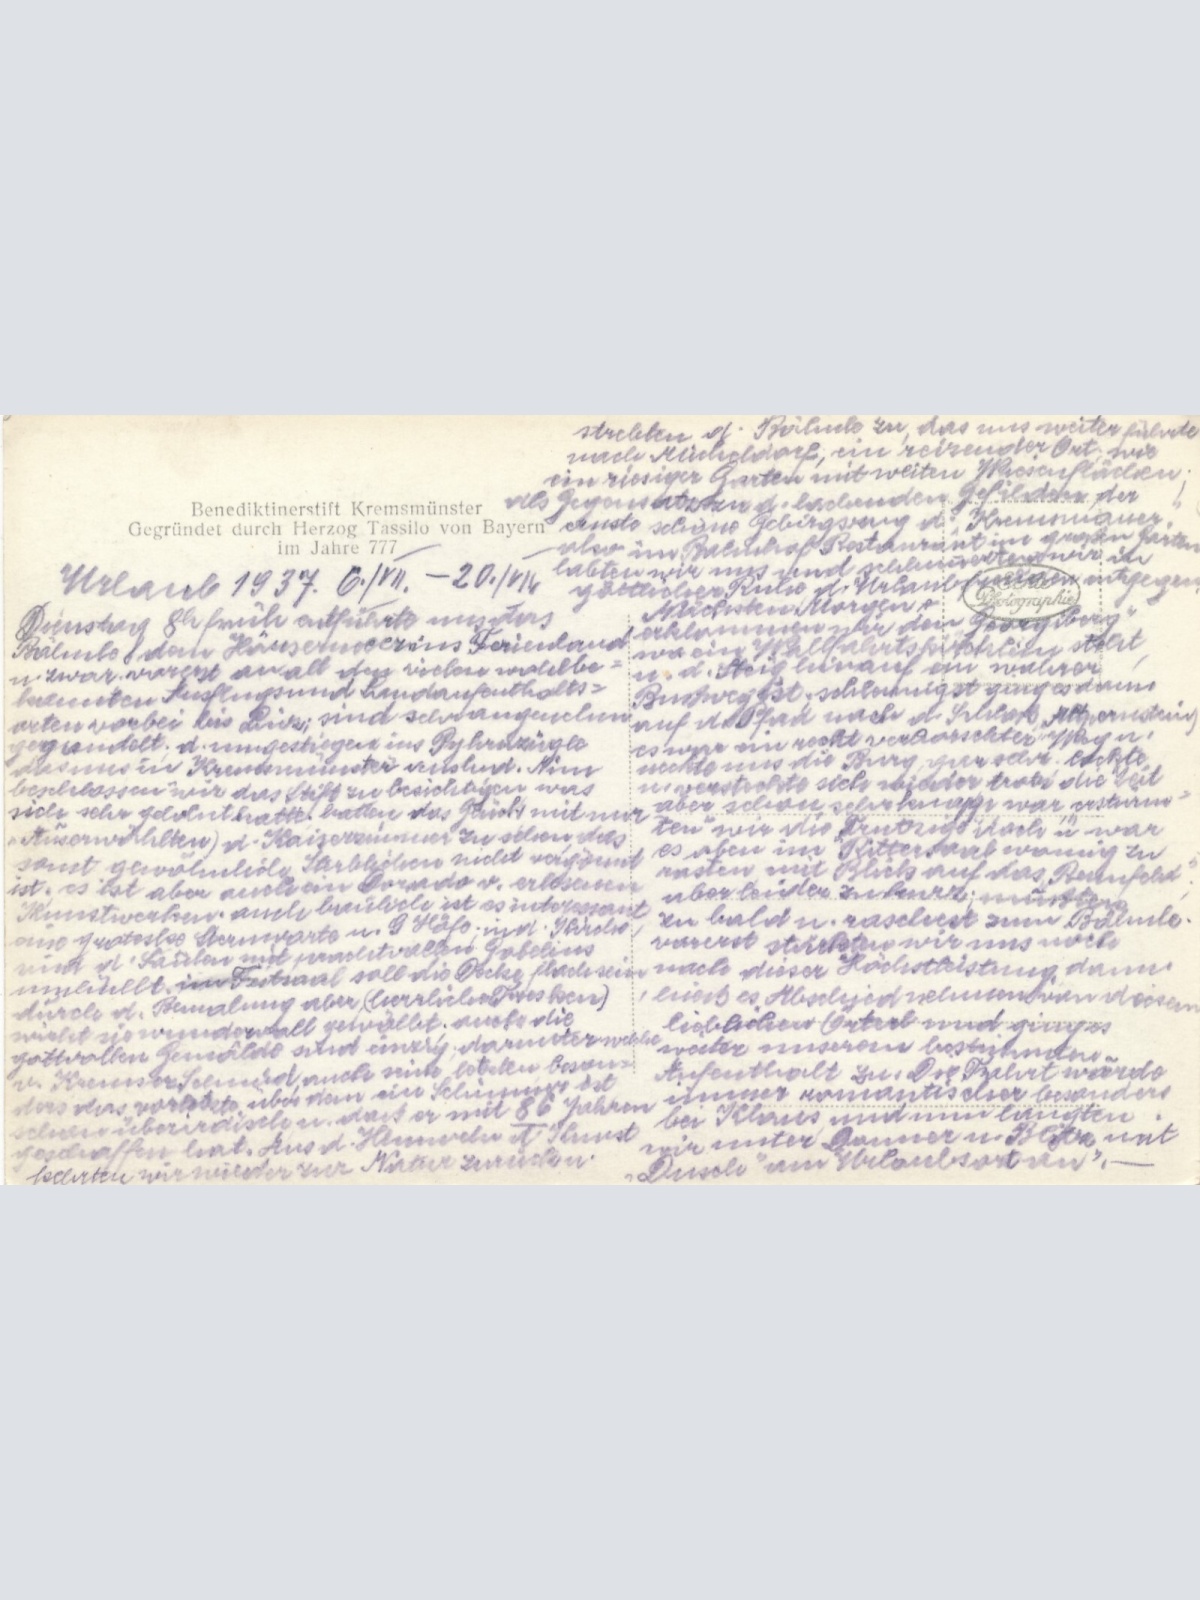 Benediktinerstift Kremsmünster
Gegründet durch Herzog Tassilo von Bayern
im Jahre 777
Urlaub 1937. 6./VII. – 20./VII.
Dienstag 8h früh entführte uns das
Bähnle dem Häusermeer ins Ferienland
u. zwar vorerst an all den vielen wohlbe=
kannten Ausflugs und Landaufenthalts=
orten vorbei bis Linz, sind sehr angenehm
gegondelt. d. umgestiegen ins Pyhrnzügle
das uns in Kremsmünster auslud. Nun
beschlossen wir das Stift zu besichtigen was
sich sehr gelohnt hatte. hatten das Glück mit nur
„Auserwählten) d. Kaiserzimmer zu sehen, das
sonst gewöhnliche Sterblichen nicht vergönnt
ist. es ist aber auch ein Dorado v. erlesenen
Kunstwerken. auch baulich ist es interessant
eine groteske Sternwarte u. 9 Höfe. ind. Kirche,
sind d. Säulen mit prachtvollen Gobelins
umhüllt. im Festsaal soll die Decke flach sein
durch d. Bemalung aber (herrliche Fresken)
wirkt sie wundervoll gewölbt. auch die
gottvollen Gemälde sind einzig, darunter welche
v. Kremser Schmid, auch seine letzten beson=
ders das vorletzte, über dem ein Schimmer ist
schon überirdisch u. daß er mit 86 Jahren
geschaffen hat. Aus d. Himmeln d. Kunst
kehrten wir wieder zur Natur zurück u.
strebten d. Bähnle zu, das uns weiter führte
nach Micheldorf, ein reizender Ort, wie
ein riesiger Garten mit weiten Wiesenflächen.
als Gegensatz zu d. lachenden Gefilden, der
ernste schöne Gebirgszug d. „Kremsmauer"
also im Bahnhof Restaurant im großen Garten
labten wir uns und schlummerten wir in
göttlicher Ruhe d. Urlaub entgegen
Echte Photographie
Nächsten Morgen
erklommen wir den „Georgiberg"
wo ein Wallfahrtskirchlein steht,
u. d. Steig hinauf ein wahrer
Bußweg ist. schleunigst ging es dann
auf d. Pfad nach d. Schloß Altpernstein
es war ein recht verkorkster Weg u.
neckte uns die Burg gar sehr. lockte
u. versteckte sich wieder trotz die Zeit
aber schon sehr knapp war erstürm=
ten wir die Trutzige doch u. war
es oben im Rittersaal wonnig zu
rasten mit Blick auf das
aber leider zu kurz, mußten
zu bald u. raschest zum Bähnle.
vorerst stärkten wir uns noch
nach dieser Höchstleistung, dann
hieß es Abschied nehmen von diesem
lieblichen Örterl und ging es
weiter unserem bestimmten
Aufenthalt zu. Die Fahrt wurde
immer romantischer besonders
bei Klaus und nun langten
wir unter Donner u. Blitz mit
„Dusch" am Urlaubsort an". —